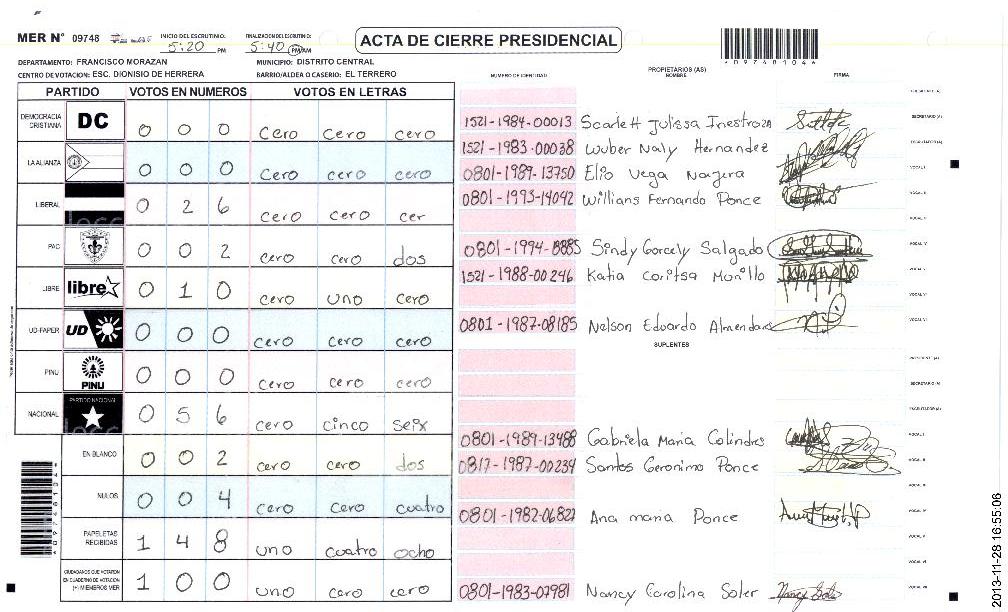 MER N° 09748 INICIO DEL ESCRUTINIO: 5:20 PM FINALIZACION DEL ESCRUTINIO: 5:40 PM/AM ACTA DE CIERRE PRESIDENCIAL
DEPARTAMENTO: FRANCISCO MORAZAN MUNICIPIO: DISTRITO CENTRAL
CENTRO DE VOTACION: ESC. DIONISIO DE HERRERA BARRIO/ALDEA O CASERIO: EL TERRERO
PARTIDO VOTOS EN NUMEROS VOTOS EN LETRAS
DEMOCRACIA CRISTIANA DC 0 0 0 cero cero cero
LA ALIANZA 0 0 0 cero cero cero
LIBERAL 0 2 6 cero cero cer
PAC 0 0 2 cero cero dos
LIBRE libre 0 1 0 cero uno cero
UD-FAPER UD 0 0 0 cero cero cero
PINU PINU 0 0 0 cero cero cero
NACIONAL PARTIDO NACIONAL 0 5 6 cero cinco seix
EN BLANCO 0 0 2 cero cero dos
NULOS 0 0 4 cero cero cuatro
PAPELETAS RECIBIDAS 1 4 8 uno cuatro ocho
CIUDADANOS QUE VOTARON EN CUADERNO DE VOTACION (+) MIEMBROS MER 1 0 0 uno cero cero
NUMERO DE IDENTIDAD PROPIETARIOS (AS) NOMBRE FIRMA
1521-1984-00013 Scarlett Julissa Inestroza SECRETARIO (A)
1521-1983-00038 Wuber Naly Hernandez ESCRUTADOR (A)
0801-1989-13750 Elio Vega Najera VOCAL I
0801-1993-14042 Willians Fernando Ponce VOCAL II
0801-1994-08885 Sindy Gorcely Salgado VOCAL IV
1521-1988-00246 Katia Coritsa Morillo VOCAL V
VOCAL VI
0801-1987-08185 Nelson Eduardo Almendares
SUPLENTES
PRESIDENTE (A)
SECRETARIO (A)
ESCRUTADOR (A)
0801-1989-13488 Gabriela Maria Colindres VOCAL I
0817-1987-00234 Santos Geronimo Ponce VOCAL II
0801-1982-06827 Ana maria Ponce VOCAL IV
VOCAL V
VOCAL VI
0801-1983-07981 Nancy Carolina Soler VOCAL VII
2013-11-28 16:55:06